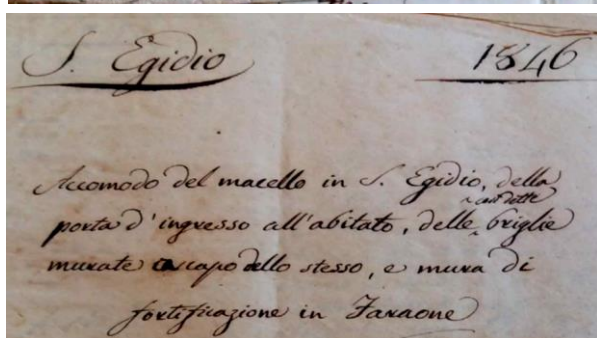 S. Egidio
1846
Accomodo del macello in S. Egidio, della
così dette
porta d'ingresso all'abitato, delle briglie
murate a capo dello stesso, e mura di
fortificazione in Faraone